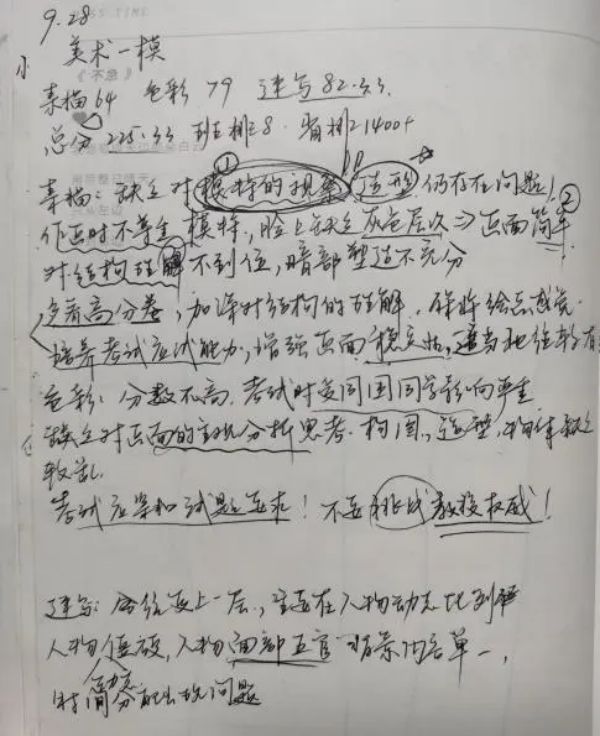 9.28
美术一模
素描64 色彩79 速写82.33.
总分225.33 班排38. 省排21400+
素描：缺乏对模特的观察 ① 造型☆仍存在问题！
作画时不尊重模特，脸上缺乏灰色层次⇒画面简单 ②
对结构理解不到位，暗部塑造不充分
多看高分卷，加深对结构的理解，保持绘画感觉.
培养考试应试能力，增强画面稳定性，适当地往
色彩：分数不高，考试时受周围同学影响严重
缺乏对画面的主观分析思考. 构图，造型，物体
较乱.
考试应紧扣试题要求！不要挑战教授权威！
速写：应该更上一层，主要在人物动态比例
人物僵硬，人物面部五官 背景内容单一，
时间分配出现问题